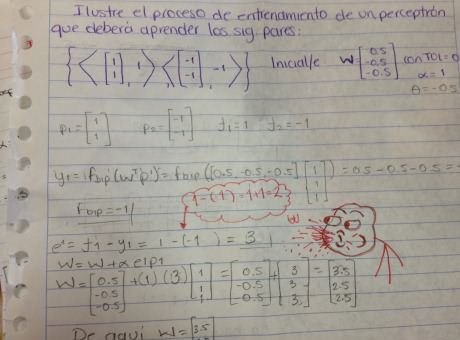 Ilustre el proceso de entrenamiento de un perceptrón
que deberá aprender los sig. pares:
{<[1 1 1], 1>, <[-1 -1], -1>} Inicial/e W=[0.5 -0.5 -0.5] con TOL=0
α=1
θ=-0.5
p1=[1 1] p2=[-1 -1] t1=1 t2=-1
y1=fbip(wᵀp')=fbip([0.5 -0.5 -0.5][1 1 1])=0.5-0.5-0.5=
fbip=-1//
1-(-1)=1+1=2
e'=t1-y1=1-(-1)=3
W=W+αe1p1
W=[0.5 -0.5 -0.5]+(1)(3)[1 1 1]=[0.5 -0.5 -0.5]+[3 3 3]=[3.5 2.5 2.5]
De aquí W=[3.5